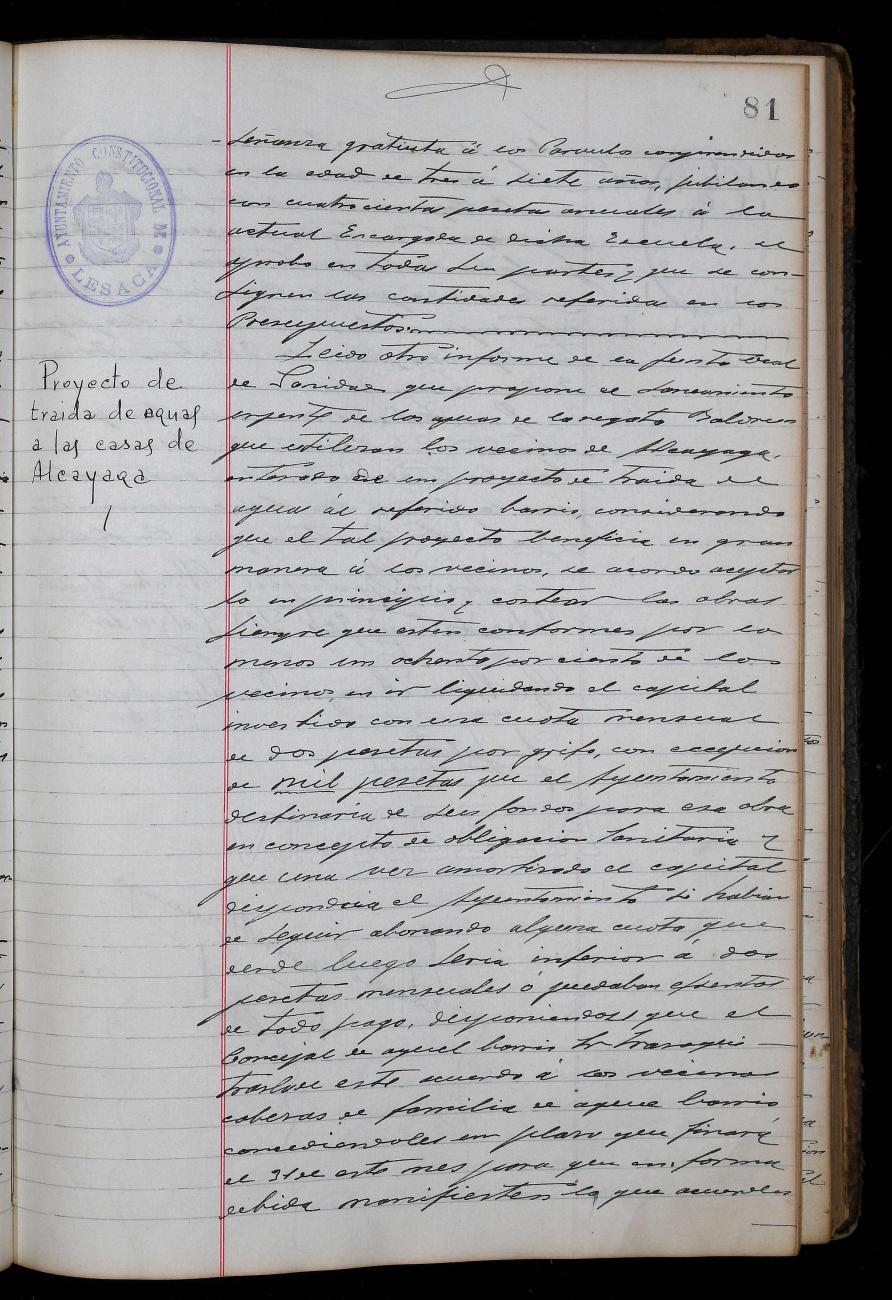 81
AYUNTAMIENTO CONSTITUCIONAL DE
LESAGA
-señanza gratuita á los Parvulos comprendidos
en la edad de tres á siete años, jubilando
con cuatrocientas pesetas anuales á la
actual Encargada de dicha Escuela, se
aprobo en todas sus partes y que se con-
signen las cantidades referidas en los
Presupuestos.
Leido otro informe de la Junta local
de Sanidad que propone el saneamiento
urgente de las aguas de la regata
que utilizan los vecinos de Alcayaga,
enterado de un proyecto de traida de
aguas al referido barrio, considerando
que el tal proyecto beneficia en gran
manera á los vecinos, se acordo aceptar
lo en principio y costear las obras
siempre que esten conformes por lo
menos un ochenta por ciento de los
vecinos, en ir liquidando el capital
invertido con una cuota mensual
de dos pesetas por grifo, con excepcion
de mil pesetas que el Ayuntamiento
destinaria de sus fondos para esa obra
en concepto de obligacion sanitaria y
que una vez amortizado el capital
dispondria el Ayuntamiento si habian
de seguir abonando alguna cuota que
desde luego seria inferior á dos
pesetas mensuales ó quedaban esentos
de todo pago, disponiendose que el
Concejal de aquel barrio Sr.
traslade este acuerdo á los vecinos
cabezas de familia de aquel barrio
concediendoles un plazo que finará
el 31 de este mes para que en forma
debida manifiesten lo que acuerden
Proyecto de
traida de aguas
a las casas de
Alcayaga